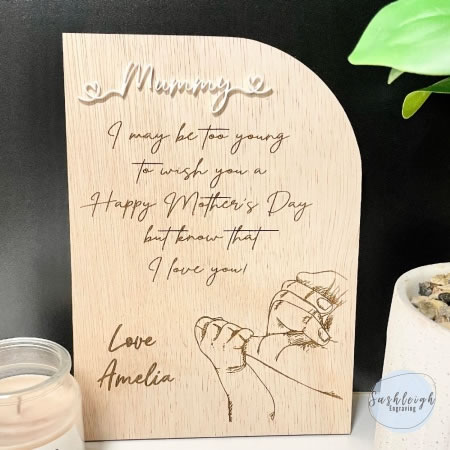 Mummy
I may be too young
to wish you a
Happy Mother's Day
but know that
I love you!
Love
Amelia
Sashleigh
Engraving